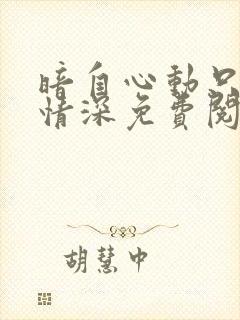 暗自心動只
情深免費閱
胡慧中